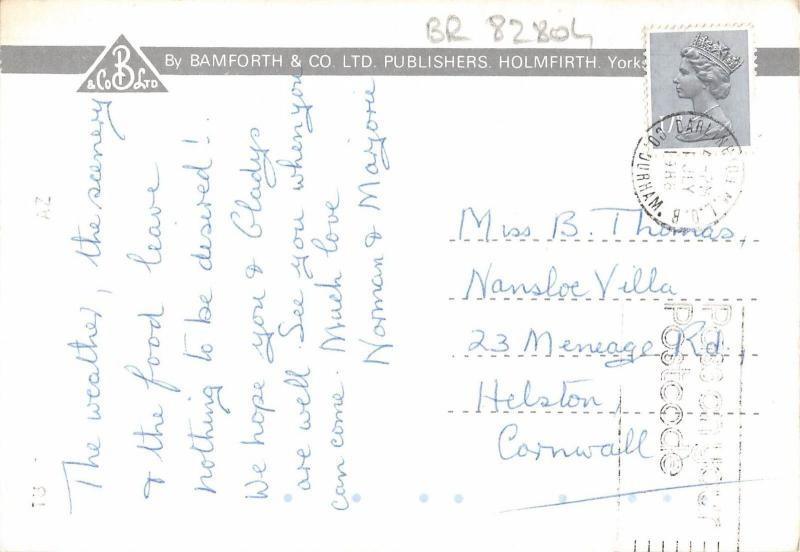 BR 82804
By BAMFORTH & CO. LTD. PUBLISHERS. HOLMFIRTH. Yorks
B
& Co LTD
The weather, the scenery
& the food leave
nothing to be desired!
We hope you & Gladys
are well. See you when you
can come. Much love
Norman & Marjorie
AZ
Miss B. Thomas,
Nansloe Villa
23 Meneage Rd,
Helston,
Cornwall
JLY
1988
CO. DURHAM
Pass on your
postcode